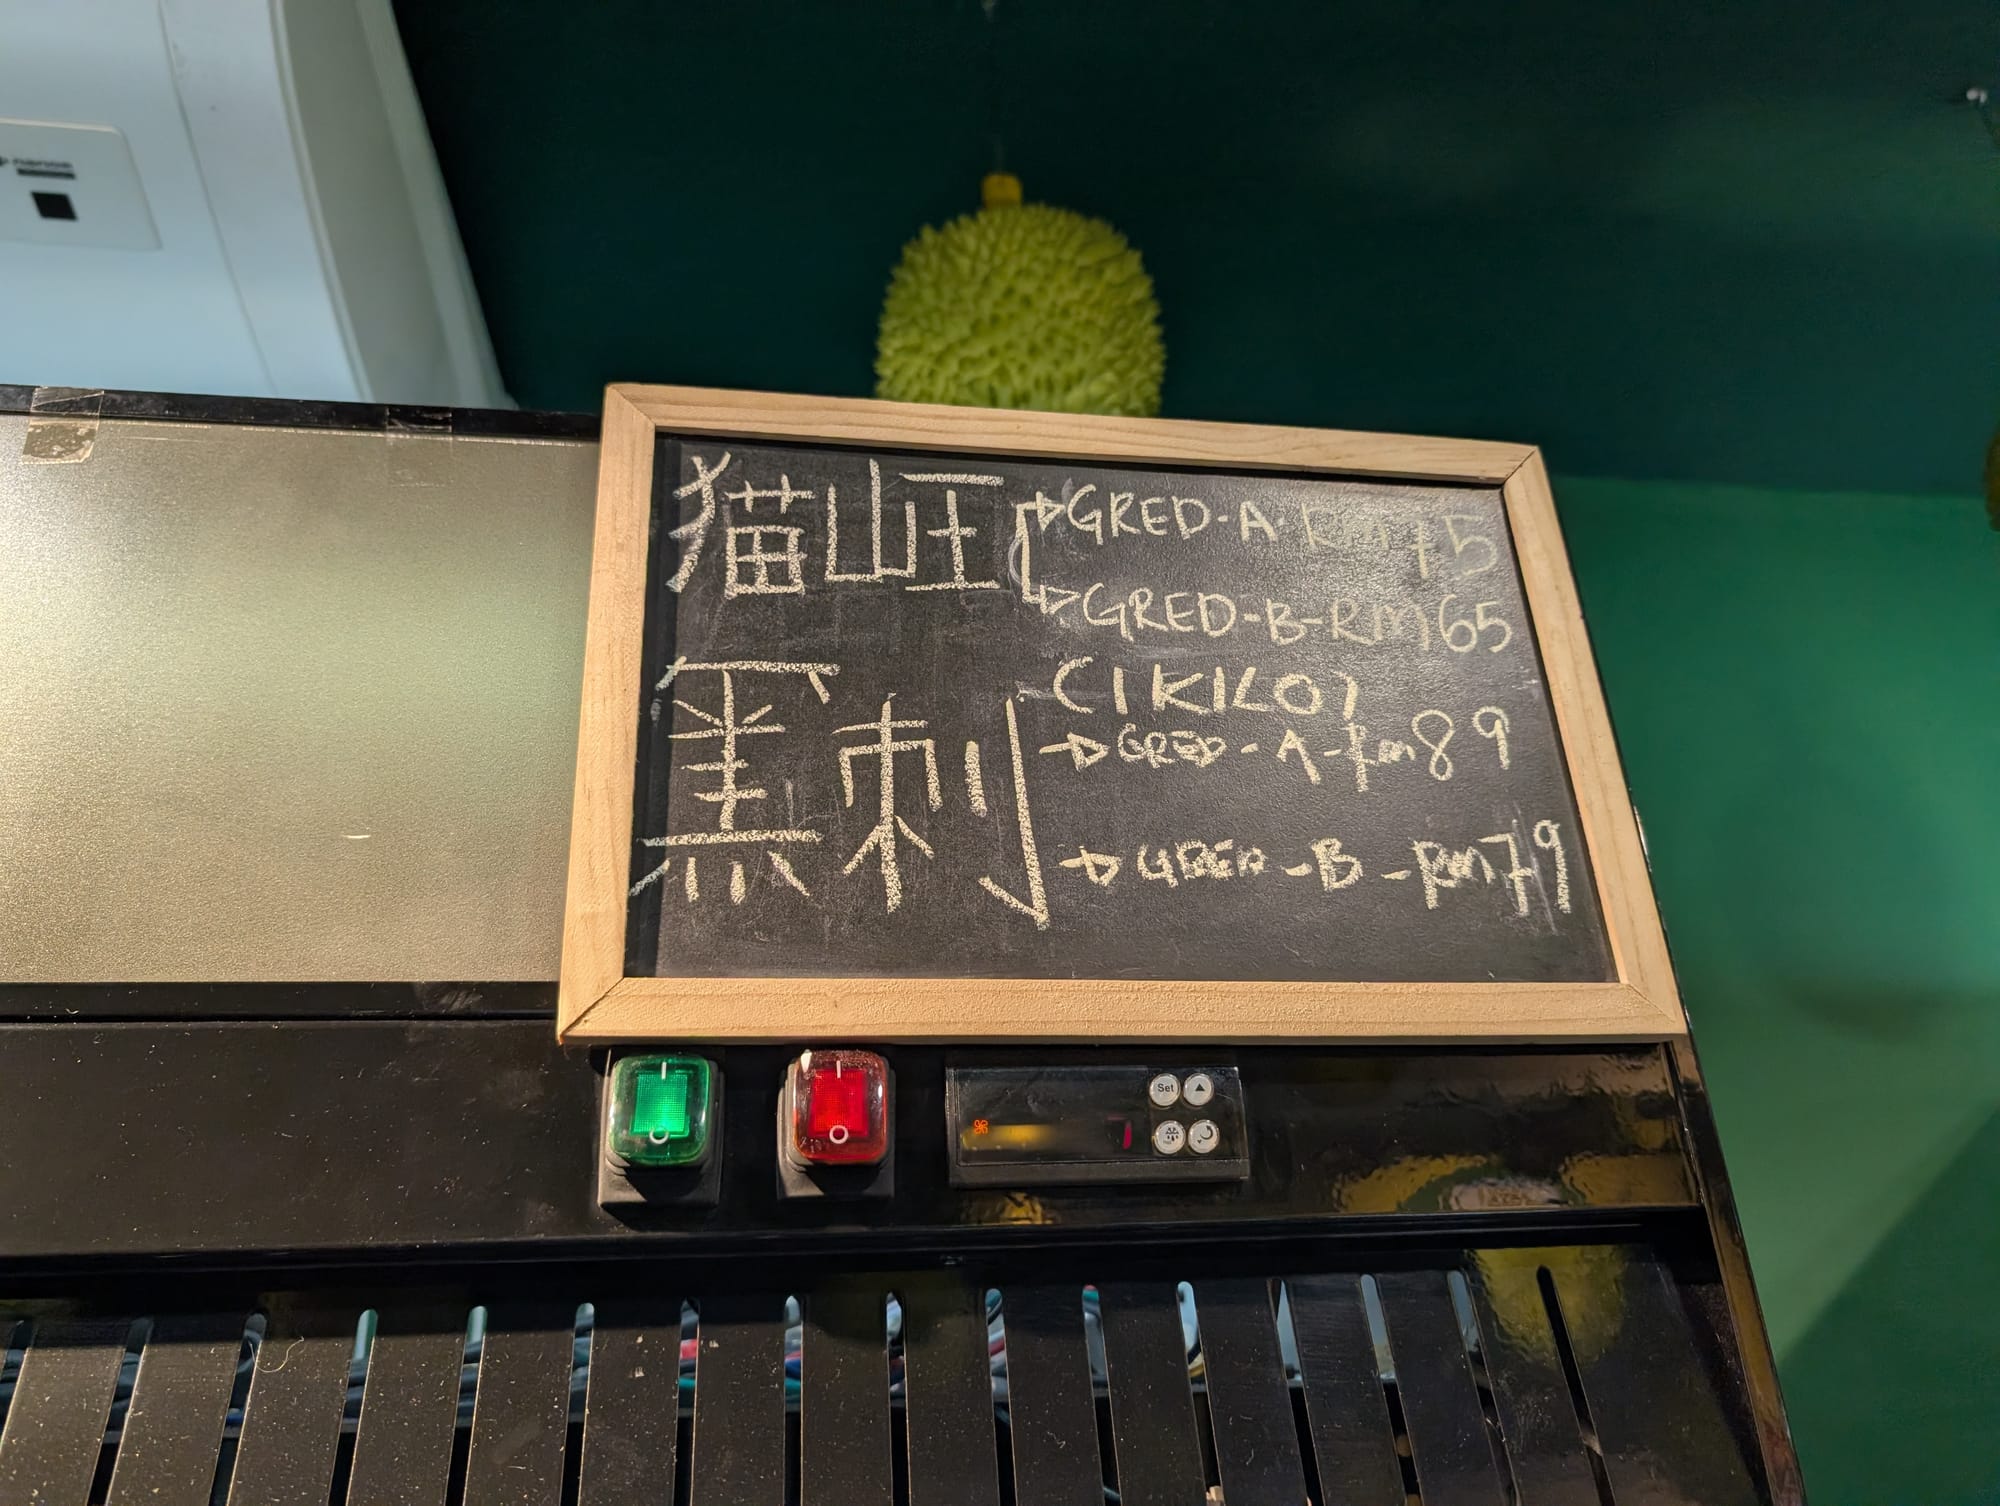 猫山王
GRED-A-RM75
GRED-B-RM65
(1KILO)
黑刺
GRED-A-RM89
GRED-B-RM79
Set